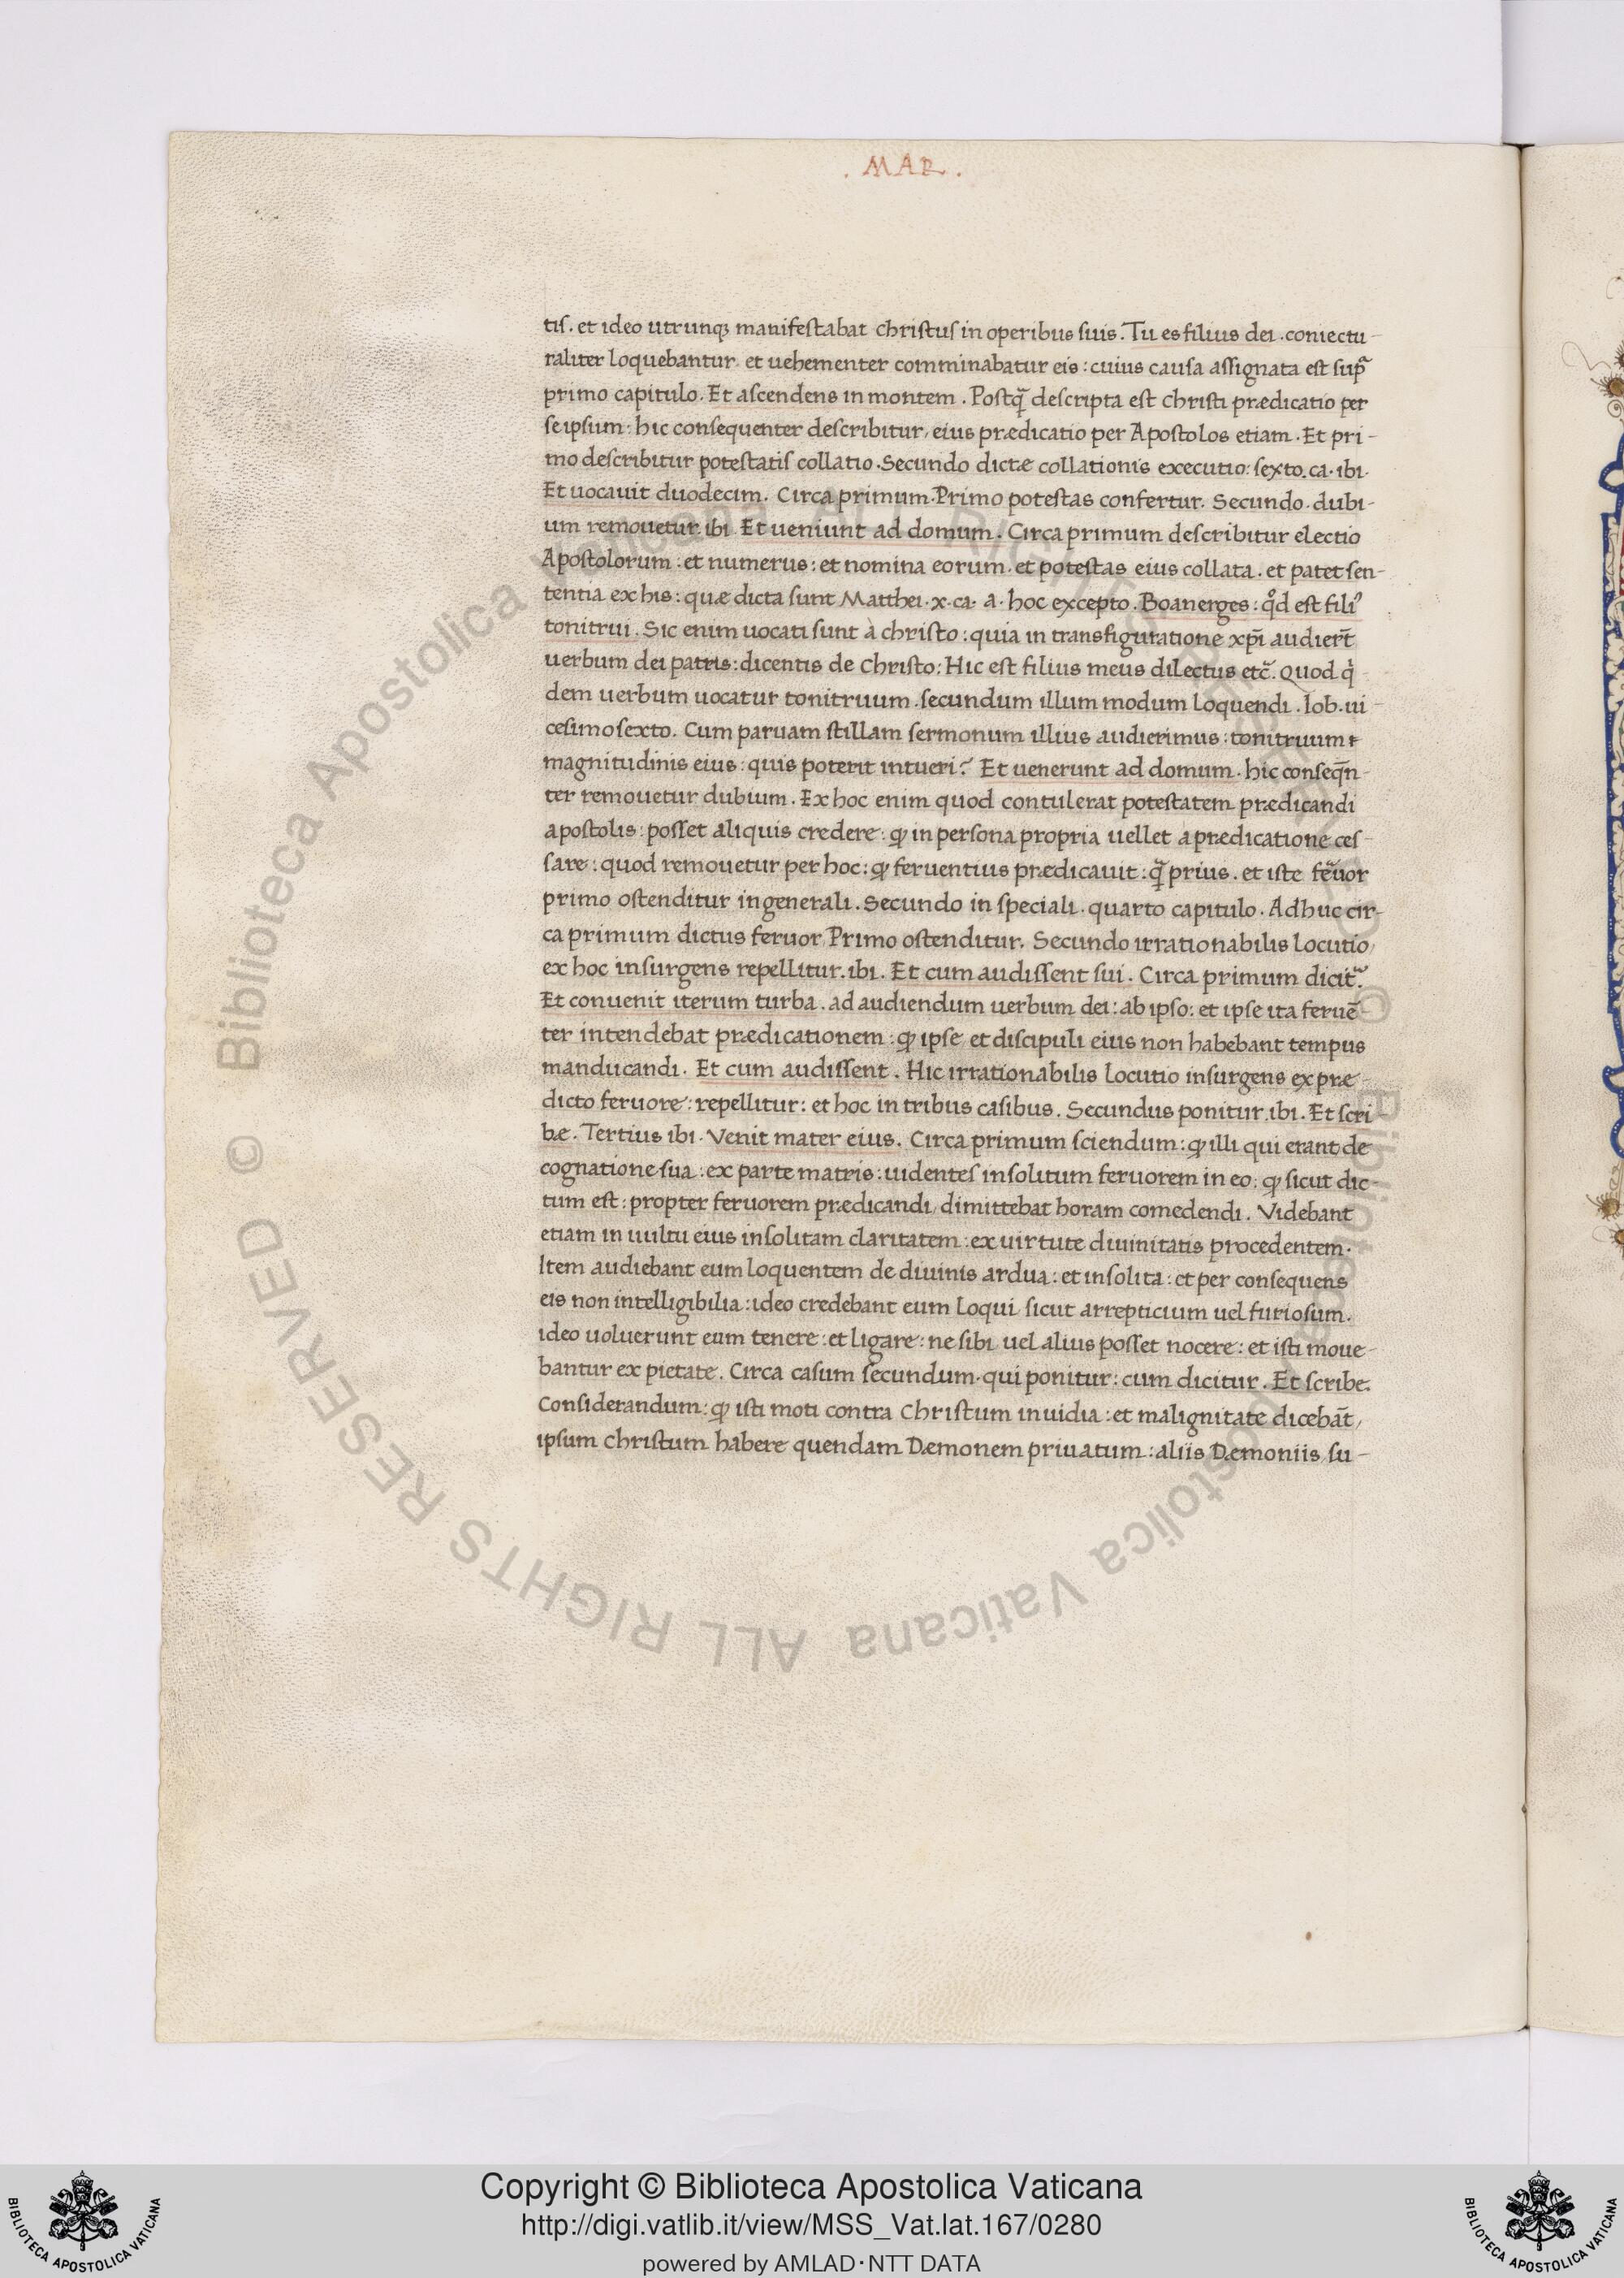 . MAR .
tis. et ideo utrunq; manifestabat christus in operibus suis. Tu es filius dei. coniectu-
raliter loquebantur. et uehementer comminabatur eis: cuius causa assignata est sup̃
primo capitulo. Et ascendens in montem. Postq̃ descripta est christi prædicatio per
seipsum: hic consequenter describitur, eius prædicatio per Apostolos etiam. Et pri-
mo describitur potestatis collatio. Secundo dictæ collationis executio: sexto. ca. ibi.
Et uocauit duodecim. Circa primum. Primo potestas confertur. Secundo. dubi-
um remouetur. ibi. Et ueniunt ad domum. Circa primum describitur electio
Apostolorum: et numerus: et nomina eorum. et potestas eius collata. et patet sen-
tentia ex his: quæ dicta sunt Matthei. x. ca. a. hoc excepto. Boanerges: qd̊ est fili⁹
tonitrui. Sic enim uocati sunt à christo: quia in transfiguratione xp̄i audier̄t
uerbum dei patris: dicentis de Christo: Hic est filius meus dilectus etc̃. Quod q̇-
dem uerbum uocatur tonitruum. secundum illum modum loquendi. Iob. ui-
cesimosexto. Cum paruam stillam sermonum illius audierimus: tonitruum
magnitudinis eius: quis poterit intueri? Et uenerunt ad domum. hic conseq̄n-
ter remouetur dubium. Ex hoc enim quod contulerat potestatem prædicandi
apostolis: posset aliquis credere: ꝙ in persona propria uellet a prædicatione ces-
sare: quod remouetur per hoc: ꝙ feruentius prædicauit: q̃ prius. et iste fẽuor
primo ostenditur in generali. Secundo in speciali. quarto capitulo. Adhuc cir-
ca primum dictus feruor, Primo ostenditur. Secundo irrationabilis locutio,
ex hoc insurgens repellitur. ibi. Et cum audissent sui. Circa primum dicit̃.
Et conuenit iterum turba. ad audiendum uerbum dei: ab ipso: et ipse ita feruē-
ter intendebat prædicationem: ꝙ ipse et discipuli eius non habebant tempus
manducandi. Et cum audissent. Hic irrationabilis locutio insurgens ex præ-
dicto feruore: repellitur: et hoc in tribus casibus. Secundus ponitur. ibi. Et scri
bæ. Tertius ibi. Venit mater eius. Circa primum sciendum: ꝙ illi qui erant de
cognatione sua: ex parte matris: uidentes insolitum feruorem in eo: ꝙ sicut dic-
tum est: propter feruorem prædicandi, dimittebat horam comedendi. Videbant
etiam in uultu eius insolitam claritatem: ex uirtute diuinitatis procedentem.
Item audiebant eum loquentem de diuinis ardua: et insolita: et per consequens
eis non intelligibilia: ideo credebant eum loqui sicut arrepticium uel furiosum.
ideo uoluerunt eum tenere: et ligare: ne sibi uel alius posset nocere: et isti moue-
bantur ex pietate. Circa casum secundum. qui ponitur: cum dicitur. Et scribe.
Considerandum: ꝙ isti moti contra Christum inuidia: et malignitate dicebāt,
ipsum Christum habere quendam Dæmonem priuatum: aliis Dæmoniis su-
© Biblioteca Apostolica Vaticana ALL RIGHTS RESERVED
Copyright © Biblioteca Apostolica Vaticana
http://digi.vatlib.it/view/MSS_Vat.lat.167/0280
powered by AMLAD·NTT DATA
BIBLIOTECA APOSTOLICA VATICANA
BIBLIOTECA APOSTOLICA VATICANA